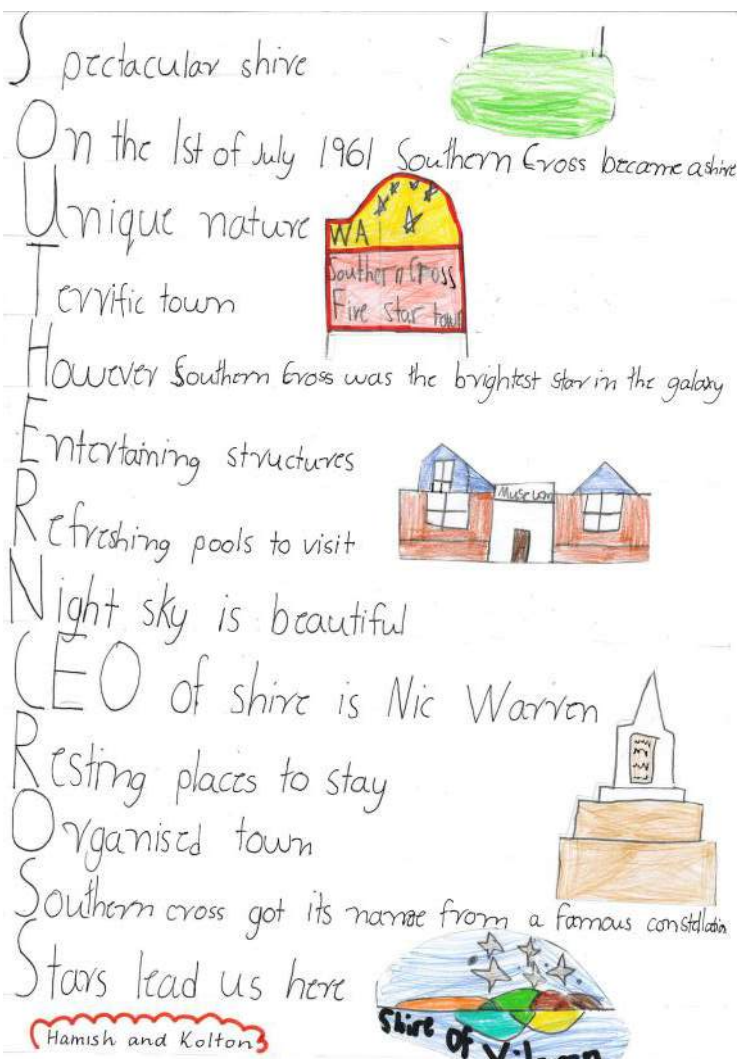 Spectacular shire
On the 1st of July 1961 Southern Cross became a shire
Unique nature
WA
Southern Cross
Five star town
Terrific town
However Southern Cross was the brightest star in the galaxy
Entertaining structures
Museum
Refreshing pools to visit
Night sky is beautiful
CEO of shire is Nic Warren
Resting places to stay
Organised town
Southern cross got its name from a famous constellation
Stars lead us here
Shire of
Hamish and Kolton